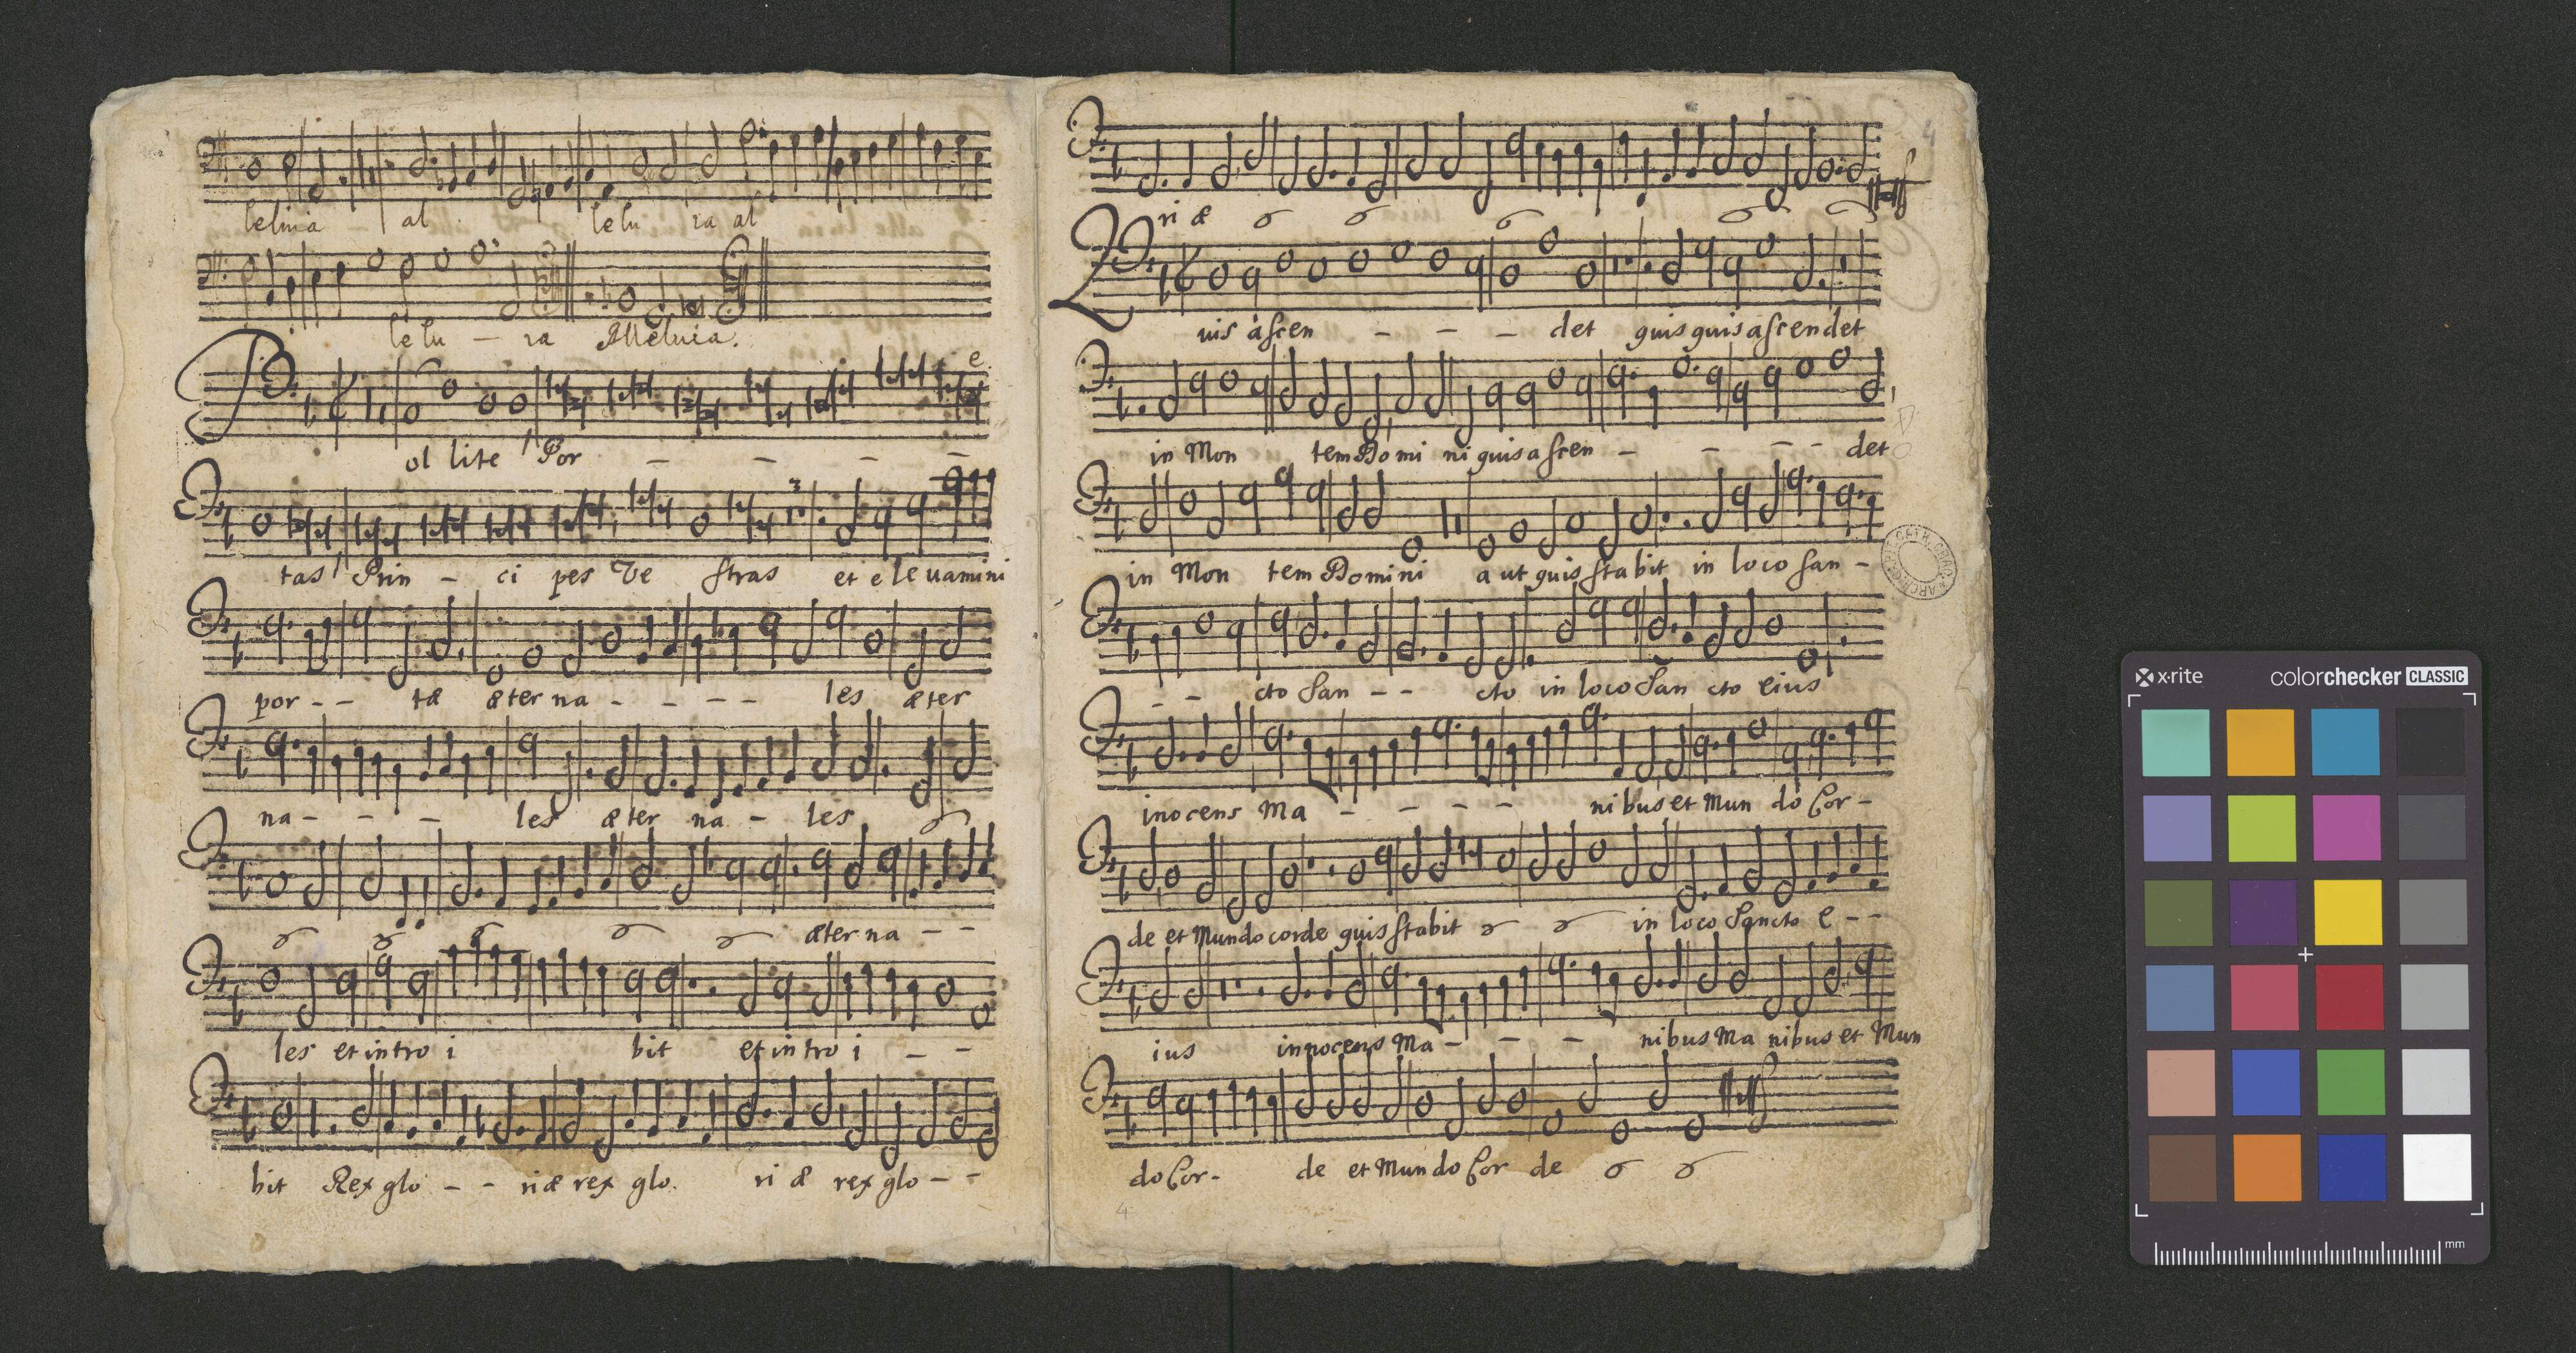 lelnia al lelu ia al
lelu - ia Alleluia.
e
ol lite Por - - - -
3
tas Prin - ci pes Ve stras et eleuamini
por - - tæ æter na - - - - les æter
na - - - les æter na - les
æter na - -
les et intro i bit et intro i - -
bit Rex glo - - riæ rex glo. ri æ rex glo - -
4
ri æ
Quis ascen - - - det quis quis ascendet
in Mon tem Domi ni quis ascen - - - - det
in Mon tem Domini aut quis stabit in loco san -
- - cto San - - cto in loco San cto eius
inocens Ma - - - - nibus et Mun do Cor -
de et Mundo corde quis stabit in loco Sancto e - -
ius innocens Ma - - - nibus Ma nibus et Mun
do Cor - de et Mundo Cor de
4
x-rite colorchecker CLASSIC
mm